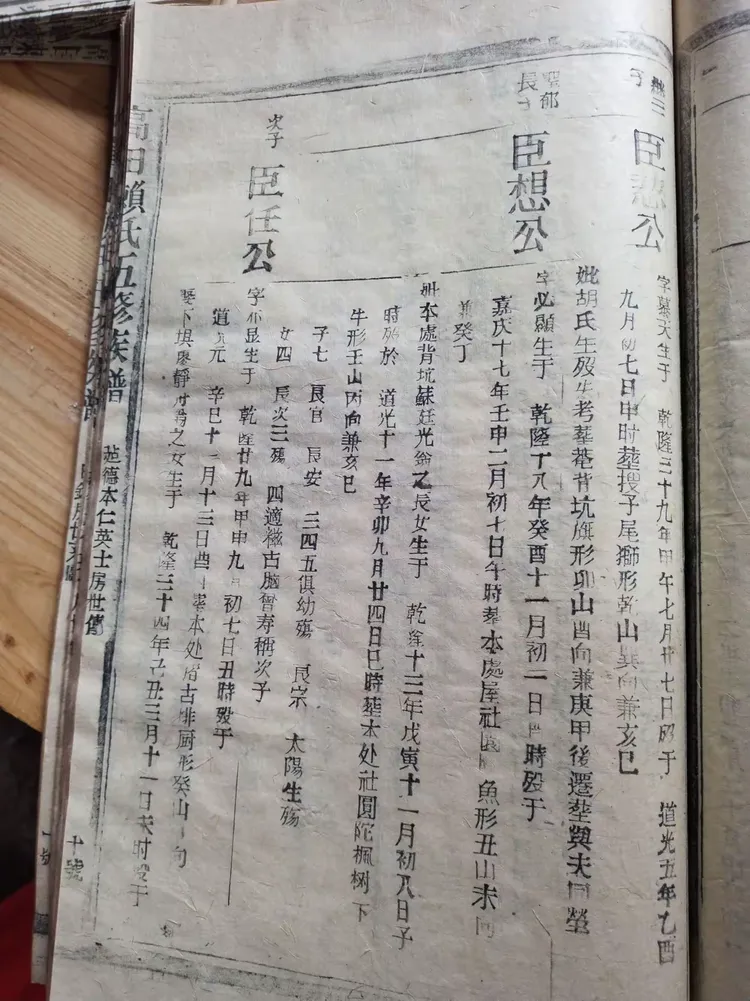 子
臣愁公
字慕天生于 乾隆三十九年甲午七月廿七日 于 道光五年乙酉
九月初七日申时塟搜子尾獅形乾山巽向兼亥巳
妣胡氏生殁失考塟巷背坑旗形卯山酉向兼庚甲後遷塟與夫同塋
郁
長子
臣想公
字必顯生于 乾隆十八年癸酉十一月初一日 時殁于
嘉庆十七年壬申二月初七日午時塟本處屋社 魚形丑山未向
兼癸丁
妣本處背坑蘇廷光翁之長女生于 乾隆十三年戊寅十一月初八日子
時殁於 道光十一年辛卯九月廿四日巳時塟本处社圆陀楓树下
牛形壬山丙向兼亥巳
子七 長官 長安 三四五俱幼殤 長宗 太陽生殤
女四 長次三殤 四適磁古脑曾寿禰次子
次子
臣任公
字不显生于 乾隆廿九年甲申九月初七日丑時殁于
道光元 辛巳十二月十三日酉 塟本处 古 厨形癸山 向
娶下填廖靜 之女生于 乾隆三十四年己丑三月十一日未时殁于
高田賴氏五修族譜
延德本仁英士房世傳
十號